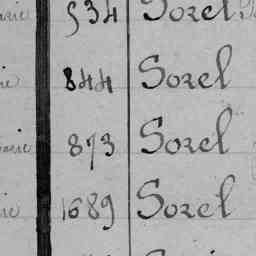 534 Sorel
844 Sorel
873 Sorel
1689 Sorel